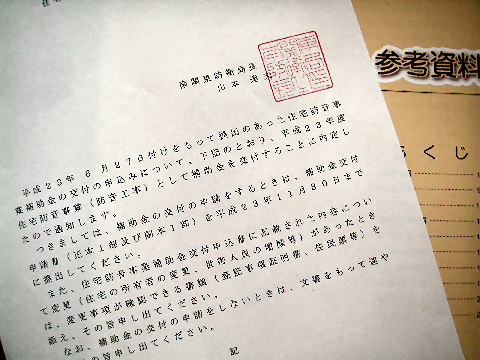 住宅
南関東防衛局長
平成23年 6月27日付けをもって提出のあった住宅防音事
業補助金の交付の申込みについて、下記のとおり、平成23年度
住宅防音事業(防音工事)として補助金を交付することに内定し
たので通知します。
つきましては、補助金の交付の申請をするときは、補助金交付
申請書(正本1部及び副本1部)を平成23年11月30日まで
に提出してください。
また、住宅防音事業補助金交付申込書に記載された内容につい
て変更(住宅の所有者の変更、世帯人員の増減等)があったとき
は、変更事項が確認できる書類(登記事項証明書、住民票等)を
添え、その旨申し出てください。
なお、補助金の交付の申請をしないときは、文書をもって速や
の旨申し出てください。
記
参考資料
もくじ